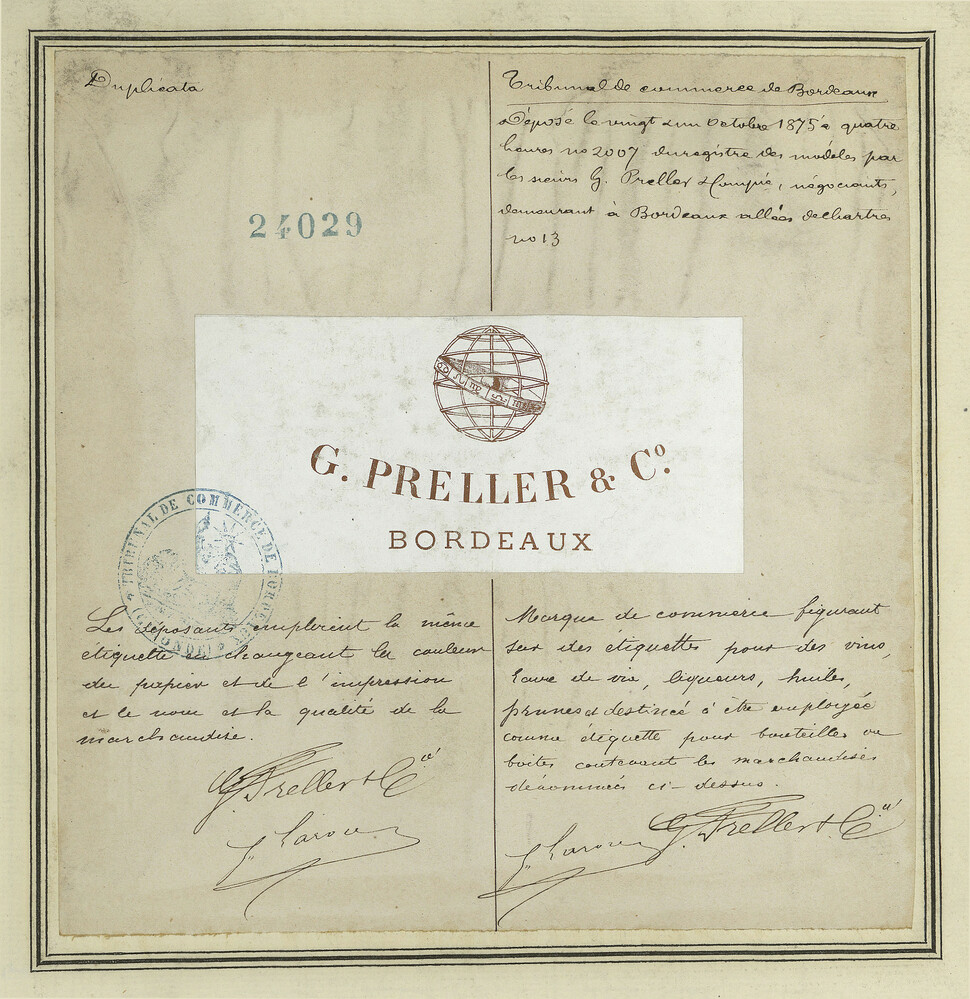 Duplicata
24029
Tribunal de commerce de Bordeaux
Déposé le vingt & un Octobre 1875 à quatre
heures no 2007 du registre des modèles par
les sieurs G. Preller & Compie, négociants,
demeurant à Bordeaux allées de chartres
no 13
G. PRELLER & Cº.
BORDEAUX
TRIBUNAL DE COMMERCE DE BORDEAUX
(GIRONDE)
Les déposants emploient la même
étiquette en changeant la couleur
du papier et de l'impression
et le nom et la qualité de la
marchandise.
G. Preller & Cie
Marque de commerce figurant
sur des étiquettes pour des vins,
eaux de vie, liqueurs, huiles,
prunes et destinée à être employée
comme étiquette pour bouteilles ou
boites contenant les marchandises
dénommées ci-dessus.
G. Preller & Cie